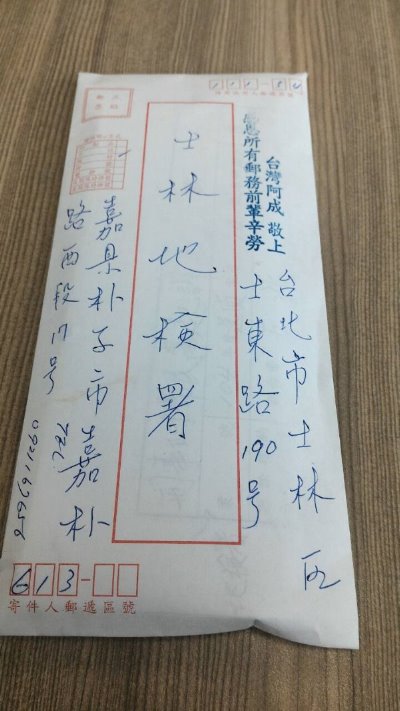 收件人郵遞區號
111-
貼郵票
感恩所有郵務前輩辛勞
台灣阿成 敬上
台北市士林區
士東路190号
士林地檢署
嘉県朴子市嘉朴
路西段17号
TEL
613-
寄件人郵遞區號